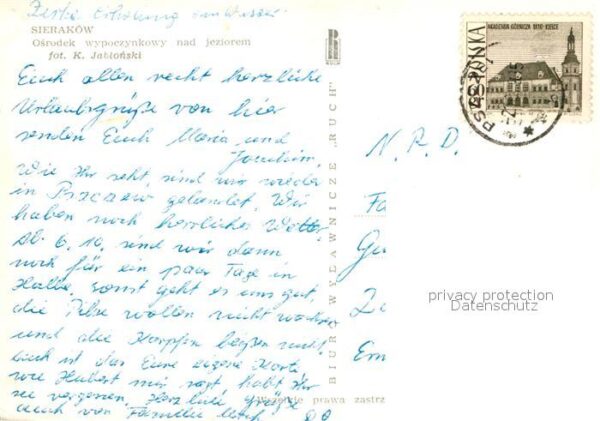 Erholung am Wasser
SIERAKÓW
Ośrodek wypoczynkowy nad jeziorem
fot. K. Jabłoński
Euch allen recht herzliche
Urlaubsgrüße von hier
senden Euch Maria und
Joachim.
Wie Ihr seht, sind wir wieder
in Pszczew gelandet. Wir
haben noch herrliches Wetter.
Ab 6.10. sind wir dann
noch für ein paar Tage in
Halle, sonst geht es uns gut,
die Pilse wollen nicht wachsen
und die Karpfen beißen nicht.
Euch ist das Eure eigene Karte
wie Hubert mir sagt, habt Ihr
sie vergessen. Herzliche Grüße
auch von Familie
BIURO WYDAWNICZE „RUCH”
Wszelkie prawa zastrz
AKADEMIA GÓRNICZA 1816 KIELCE
POLSKA
N.R.D.
Fa
Ga
privacy protection
Datenschutz